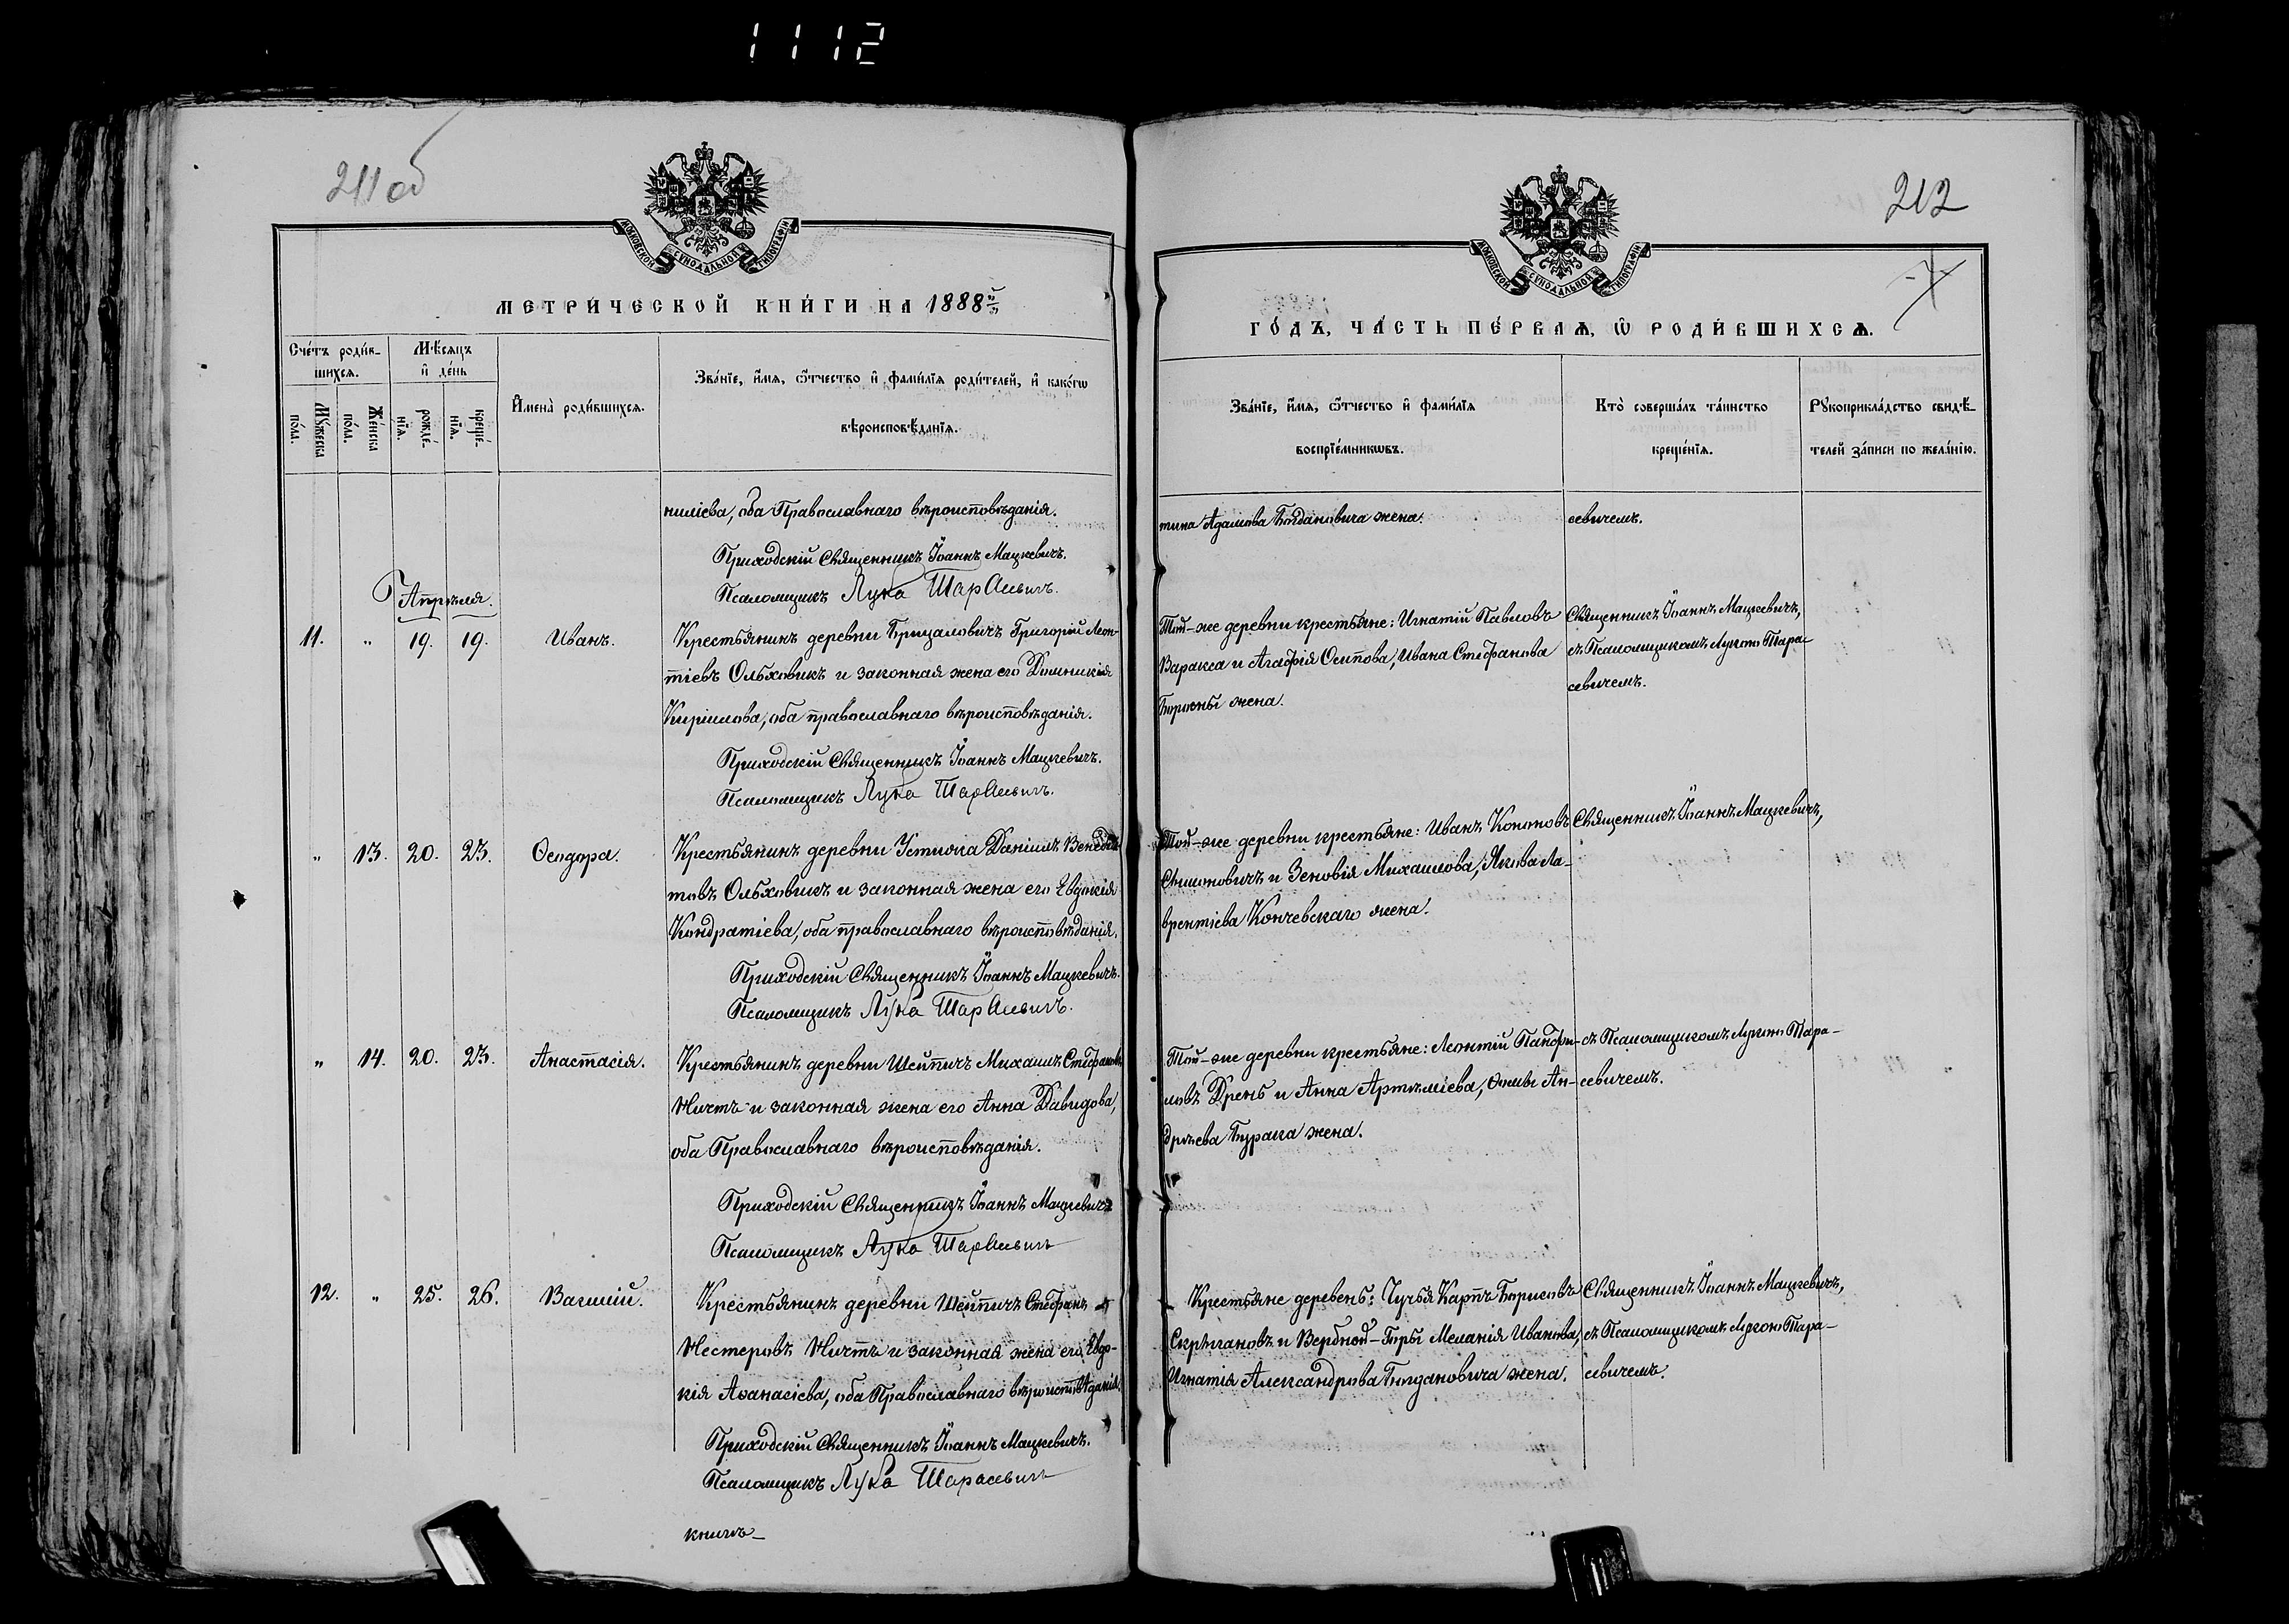 1112
211 об
МОСКОВСКОЙ СѴНОДАЛЬНОЙ ТИПОГРАФІИ
МЕТРИ́ЧЕСКОЙ КНИ́ГИ НА 1888й
Сче́тъ роди́в-
шихсѧ.
Мѣ́сѧцъ
и҆ де́нь
Мꙋ́жеска
по́ла.
Же́нска
по́ла.
рожде́-
нїѧ.
креще́-
нїѧ.
И҆мена̀ роди́вшихсѧ.
Зва́нїе, и҆́мѧ, ѻ҆́тчество и҆ фами́лїѧ роди́телей, и҆ како́гѡ
вѣроисповѣ́данїѧ.
ниліева, оба Православнаго вѣроисповѣданія.
Приходскій Священникъ Іоаннъ Мацкевичъ.
Псаломщикъ Лука Тарасевичъ.
Апрѣля.
11. " 19. 19. Иванъ.
Крестьянинъ деревни Бридаловичъ Григорій Леон-
тіевъ Ольховикъ и законная жена его Домникія
Кирилова, оба православнаго вѣроисповѣданія.
Приходскій Священникъ Іоаннъ Мацкевичъ.
Псаломщикъ Лука Тарасевичъ.
" 13. 20. 23. Ѳеодора.
Крестьянинъ деревни Устижа Даніилъ Венедик
товъ Ольховикъ и законная жена его Евдокія
Кондратіева, оба православнаго вѣроисповѣданія.
Приходскій Священникъ Іоаннъ Мацкевичъ.
Псаломщикъ Лука Тарасевичъ.
" 14. 20. 23. Анастасія.
Крестьянинъ деревни Шейпичъ Михаилъ Стефановъ
Ничть и законная жена его Анна Давидова,
оба Православнаго вѣроисповѣданія.
Приходскій Священникъ Іоаннъ Мацкевичъ
Псаломщикъ Лука Тарасевичъ
12. " 25. 26. Василій.
Крестьянинъ деревни Шейпичъ Стефанъ
Нестеровъ Ничть и законная жена его Евдо-
кія Аѳанасіева, оба Православнаго вѣроисповѣданія.
Приходскій Священникъ Іоаннъ Мацкевичъ.
Псаломщикъ Лука Тарасевичъ
212
МОСКОВСКОЙ СѴНОДАЛЬНОЙ ТИПОГРАФІИ
ГО́ДЪ, ЧА́СТЬ ПЕ́РВАѦ, Ѡ҆ РОДИ́ВШИХСѦ.
Зва́нїе, и҆́мѧ, ѻ҆́тчество и҆ фами́лїѧ
воспрїе́мникѡвъ.
Кто̀ соверша́лъ та́инство
креще́нїѧ.
Рꙋкоприкла́дство свидѣ́-
телей за́писи по жела́нїю.
тина Адамова Богдановича жена.
севичемъ.
Той-же деревни крестьяне: Игнатій Павловъ
Варакса и Агафія Осипова, Ивана Стефанова
жена.
Священникъ Іоаннъ Мацкевичъ,
съ Псаломщикомъ Лукою Тара-
севичемъ.
Той-же деревни крестьяне: Иванъ Кононовъ
Симоновичъ и Зеновія Михаилова, Якова Ла-
врентіева Кончевскаго жена.
Священникъ Іоаннъ Мацкевичъ,
Той-же деревни крестьяне: Леонтій Панфи-
ловъ Дрень и Анна Артеміева, Ѳомы Ан-
дреева Бурака жена.
съ Псаломщикомъ Лукою Тара-
севичемъ.
Крестьяне деревень: Чучья Карпъ Борисовъ
Скригановъ и Вербной-Горы Меланія Иванова,
Игнатія Александрова Богдановича жена.
Священникъ Іоаннъ Мацкевичъ,
съ Псаломщикомъ Лукою Тара-
севичемъ.